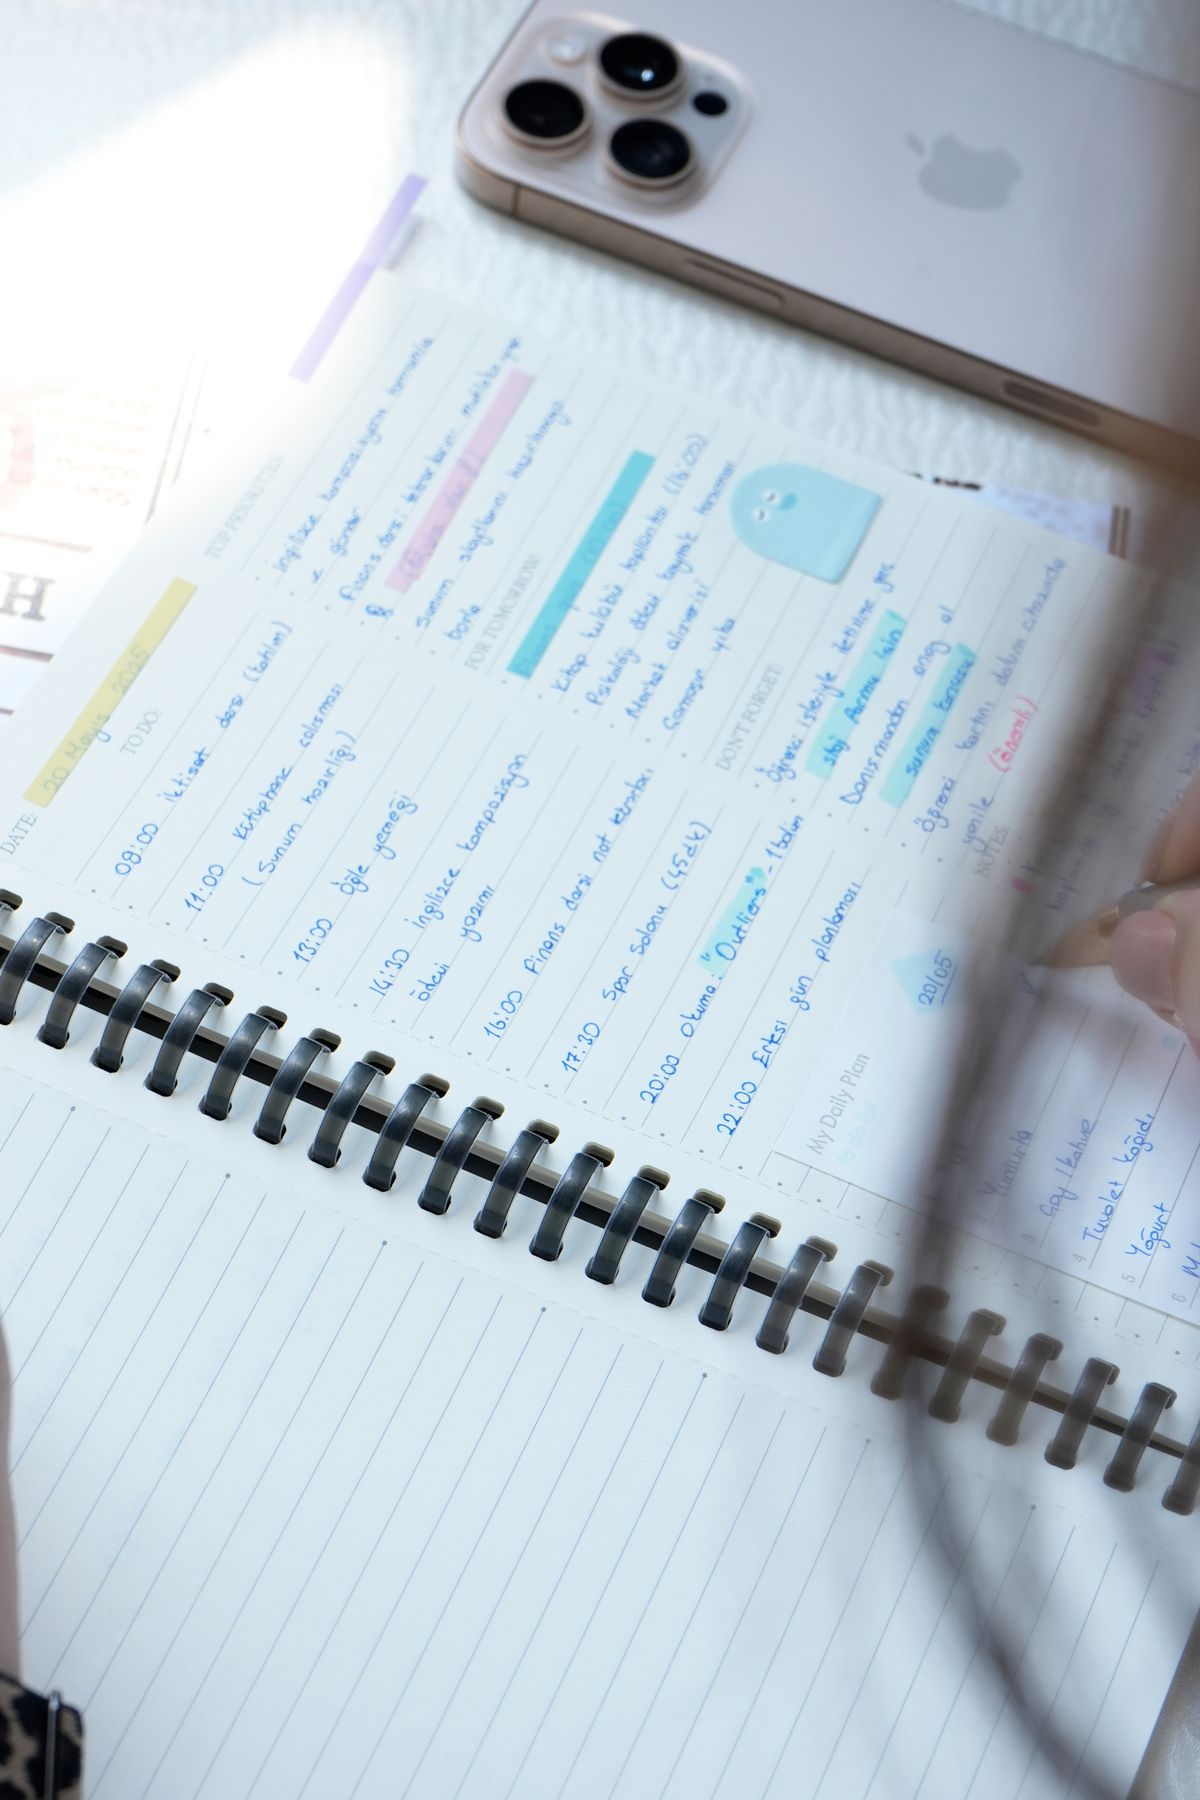 DATE:
20 Mayıs 2025
TO DO:
08:00 iktisat dersi (katılım)
11:00 Kütüphane çalışması
(Sunum hazırlığı)
13:00 Öğle yemeği
14:30 İngilizce kompozisyon
ödevi yazımı
16:00 Finans dersi not tekrarları
17:30 Spor Salonu (45dk)
20:00 Okuma: "Outliers" - 1 bölüm
22:00 Ertesi gün planlaması
TOP PRIORITIES:
İngilizce kompozisyonu tamamla
ve gönder
Finans dersi tekrarlarını mutlaka yap
Sunum slaytlarını hazırlamaya
başla
FOR TOMORROW:
Kitap kulübü toplantısı (16:00)
Psikoloji ödevi kaynak taraması
Market alışverişi
Çamaşır yıka
DON'T FORGET:
Öğrenci işleriyle iletişime geç
staj formu için!
Danışmandan onay al
sunum konusu
Öğrenci kartını dolum cihazında
yenile (önemli)
NOTES:
My Daily Plan
to do list
20/05
Yumurta
3 Çay / kahve
4 Tuvalet kağıdı
5 Yoğurt
6
H